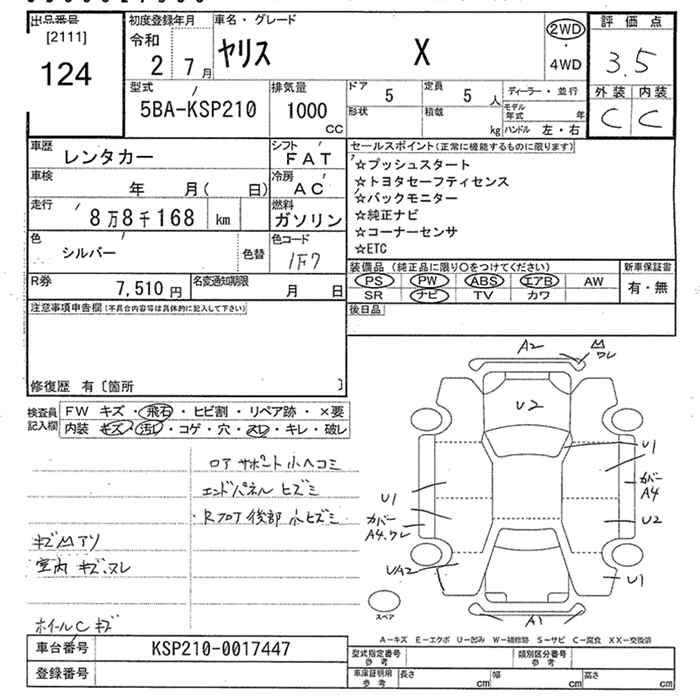 出品番号
[2111]
124
初度登録年月
令和
2 7月
車名・グレード
ヤリス X
2WD
・
4WD
評価点
3.5
外装 内装
C C
型式
5BA-KSP210
排気量
1000
CC
ドア 5
定員 5 人
形状
積載 kg
ディーラー・並行
モデル年式 年
ハンドル 左・右
車歴 レンタカー
シフト FAT
車検 年 月( 日)
冷房 AC
走行 8万8千168 km
燃料 ガソリン
色 シルバー 色替
色コード 1F7
R券 7,510円
名変通知期限 月 日
セールスポイント(正常に機能するものに限ります)
☆プッシュスタート
☆トヨタセーフティセンス
☆バックモニター
☆純正ナビ
☆コーナーセンサ
☆ETC
装備品 (純正品に限り○をつけてください)
PS PW ABS エアB AW
SR ナビ TV カワ
新車保証書
有・無
後日品
注意事項申告欄(不具合内容等は具体的に記入して下さい)
修復歴 有〔箇所 〕
検査員記入欄
FW キズ・飛石・ヒビ割・リペア跡・×要
内装 キズ・汚レ・コゲ・穴・スレ・キレ・破レ
ロアサポート小ヘコミ
エンドパネル ヒズミ
・Rフロア後部 小ヒズミ
室内 キズ、ヌレ
ホイールC キズ
A2
ワレ
U2
U1
U1
カバー
A4
カバー
A4.ワレ
U2
UA2
U1
A1
スペア
A-キズ E-エクボ U-凹み W-補修跡 S-サビ C-腐食 XX-交換済
車台番号 KSP210-0017447
登録番号
型式指定番号 参考
類別区分番号 参考
車庫証明用 参考
長さ cm
幅 cm
高さ cm